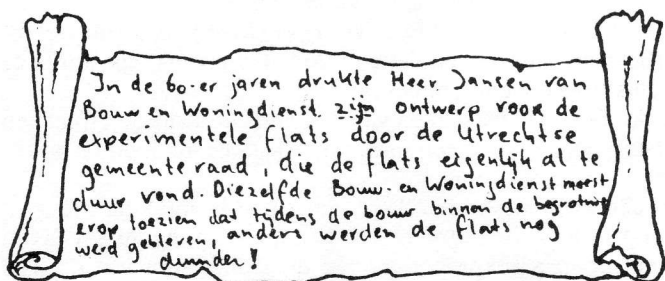 In de 60-er jaren drukte Heer Jansen van
Bouw en Woningdienst zijn ontwerp voor de
experimentele flats door de Utrechtse
gemeenteraad, die de flats eigenlijk al te
duur vond. Diezelfde Bouw- en Woningdienst moest
erop toezien dat tijdens de bouw binnen de begroting
werd gebleven, anders werden de flats nog
duurder!